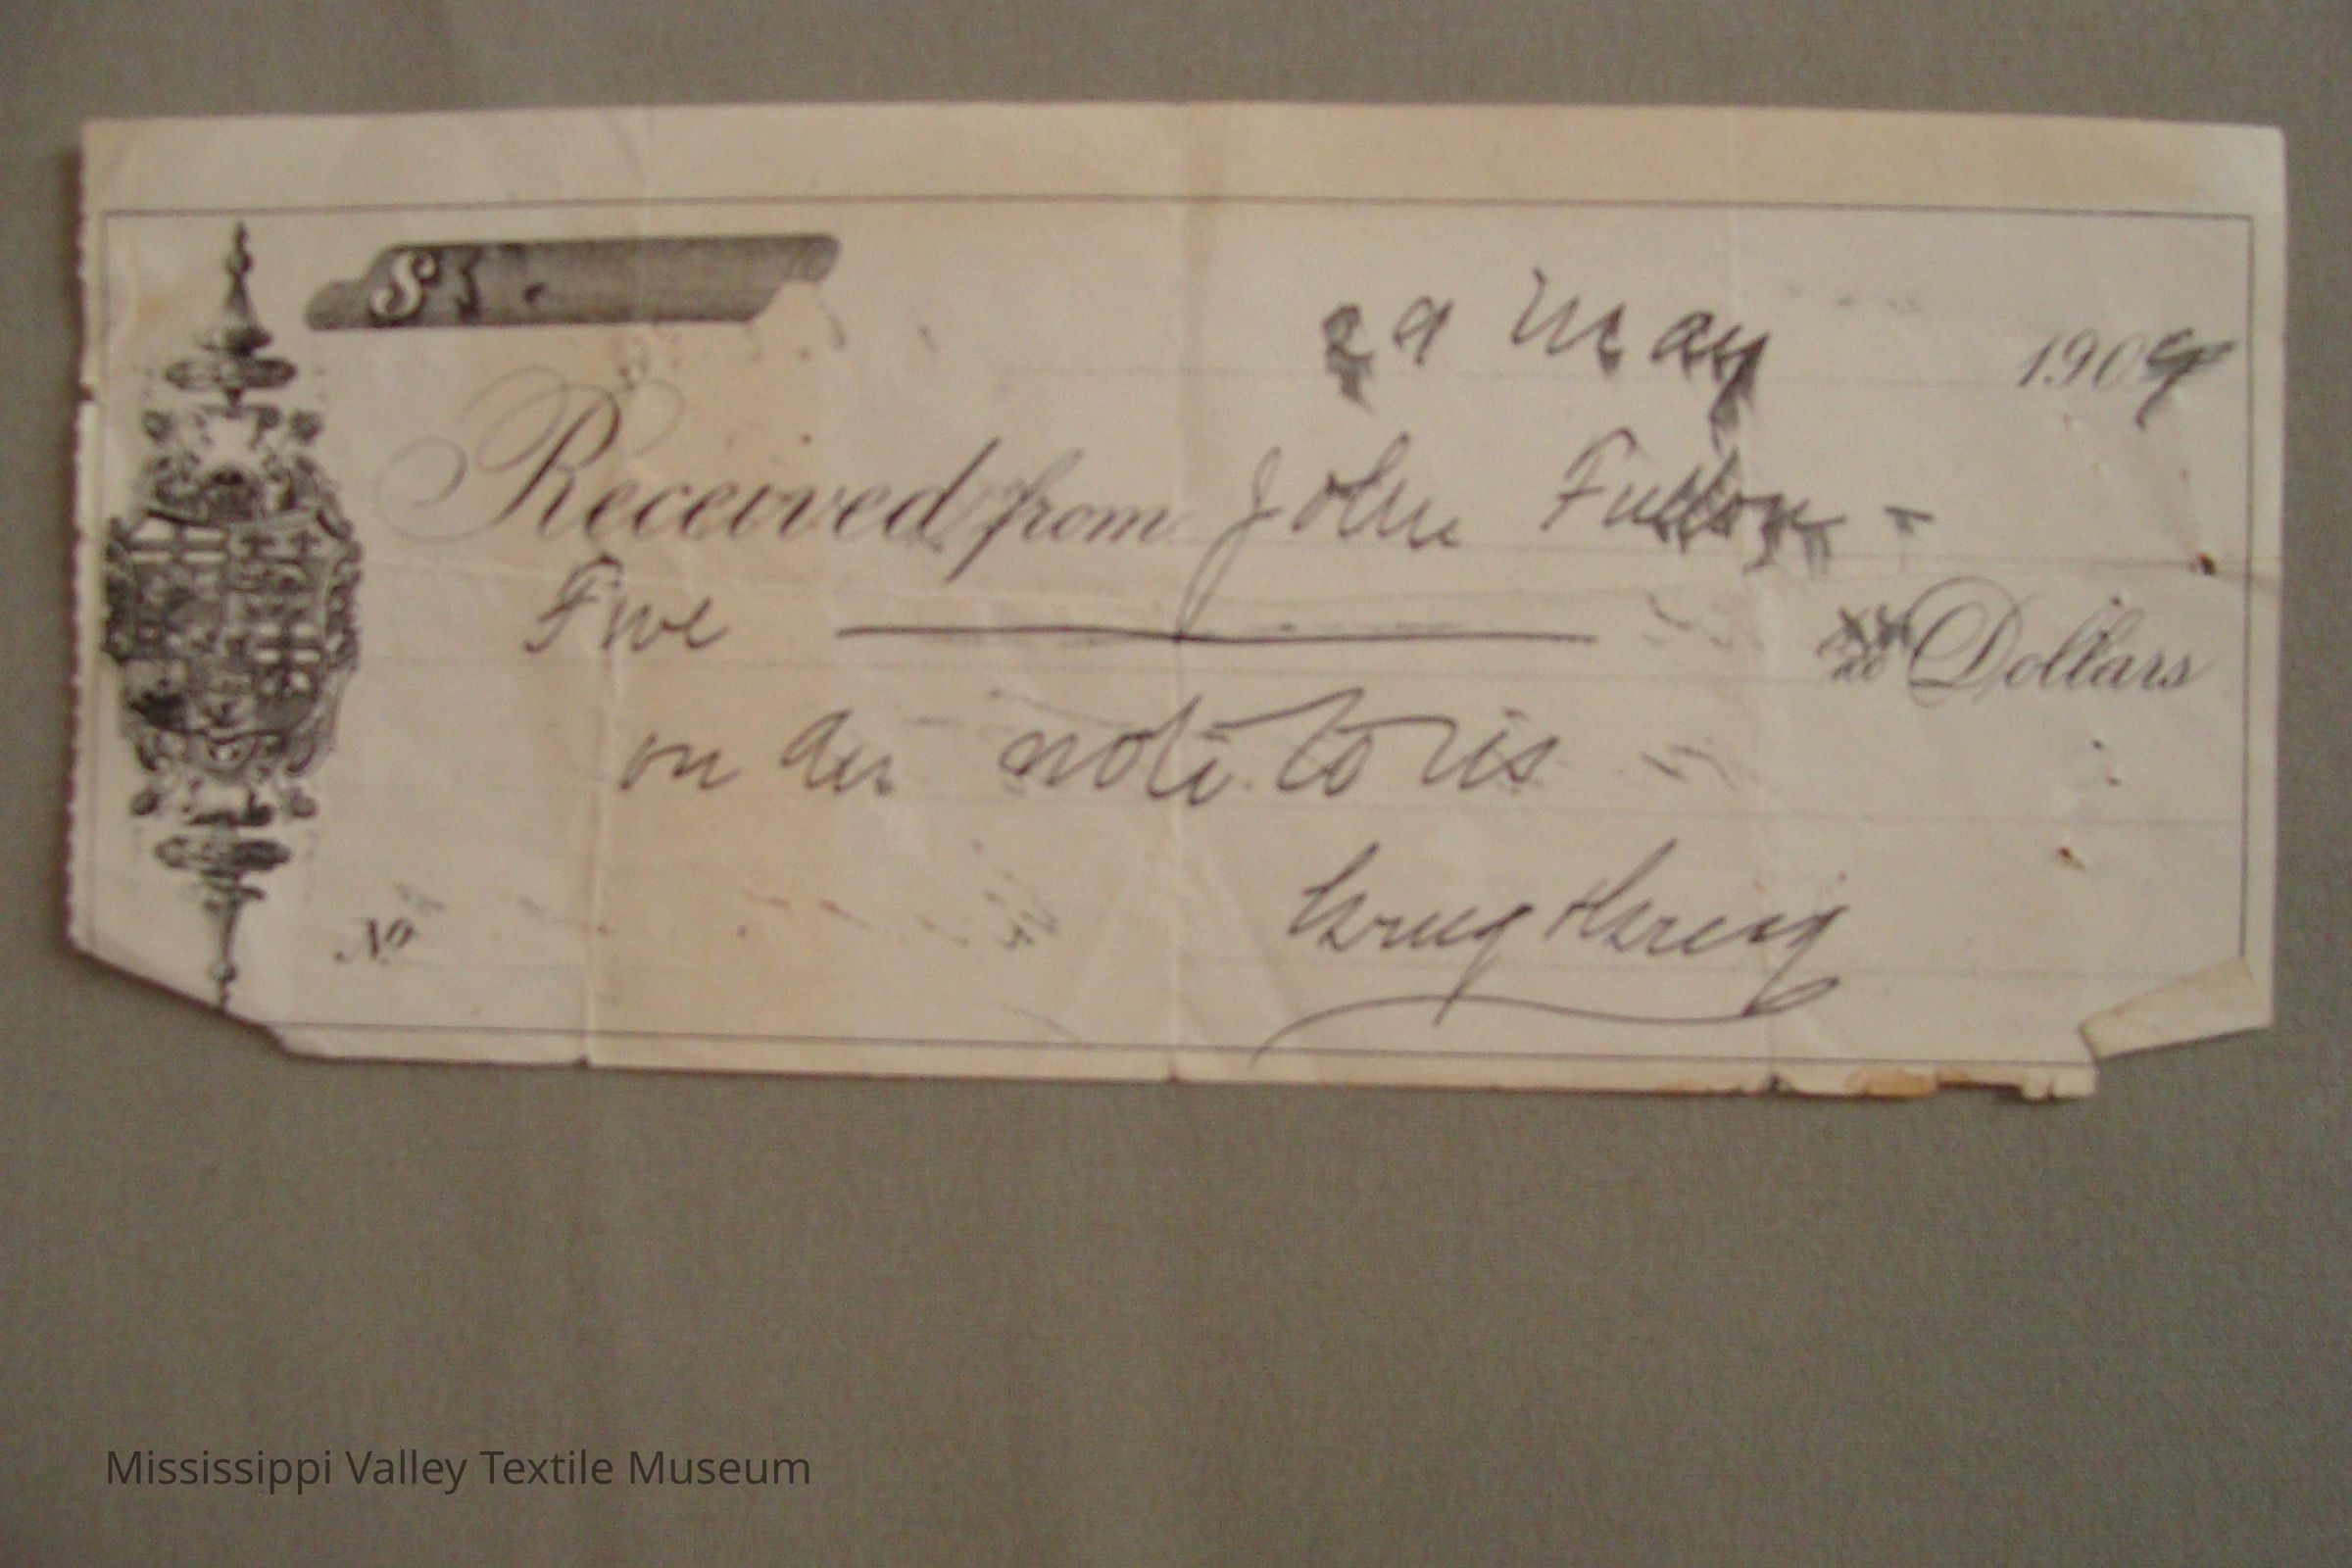 $5.
29 May 1909
Received from John Fulton -
Five Dollars
on his note to us
No
Greig & Greig
Mississippi Valley Textile Museum